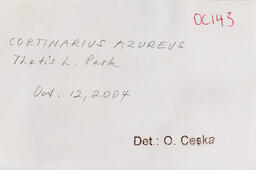 OC143
CORTINARIUS AZUREUS
Thetis L. Park
Oct. 12, 2004
Det.: O. Ceska